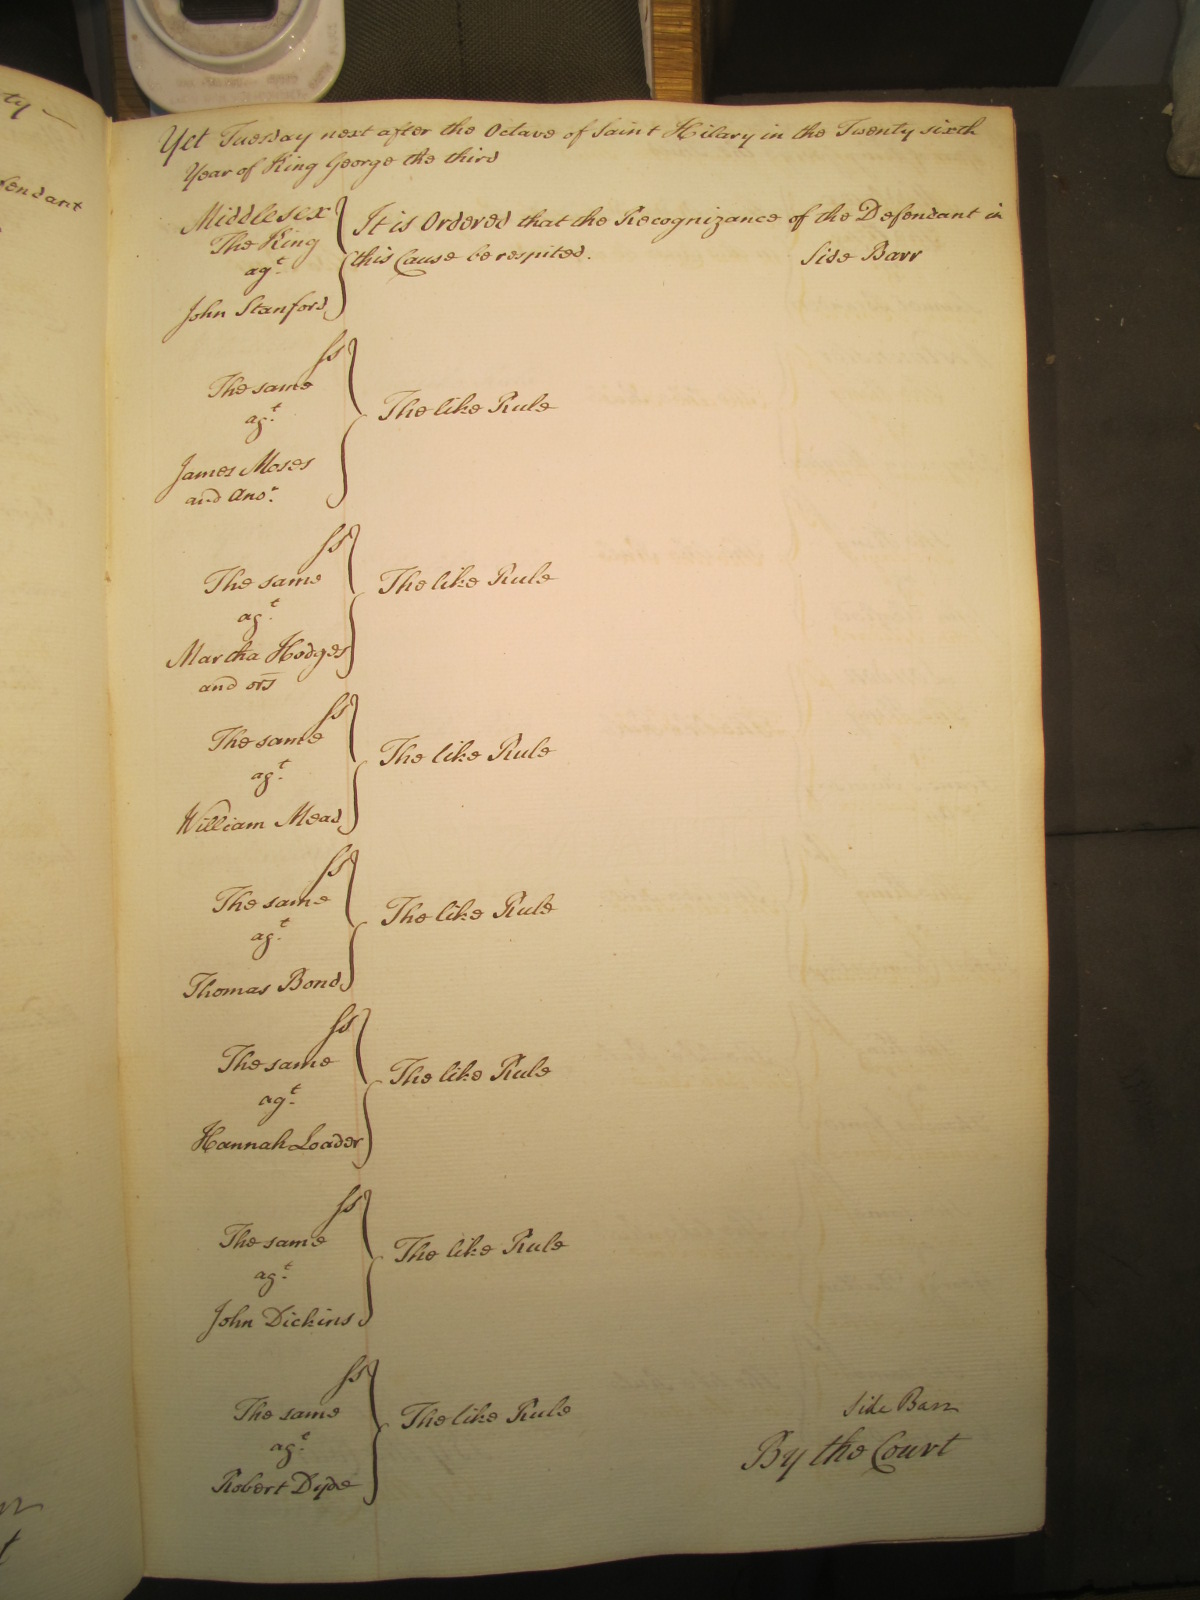 Yet Tuesday next after the Octave of Saint Hilary in the Twenty sixth
Year of King George the third
Middlesex
The King
agt
John Stanford
It is Ordered that the Recognizance of the Defendant in
this Cause be respited.
Side Barr
ss
The same
agt
James Moses
and Anor
The like Rule
ss
The same
agt
Martha Hodges
and ors
The like Rule
ss
The same
agt
William Mead
The like Rule
ss
The same
agt
Thomas Bond
The like Rule
ss
The same
agt
Hannah Loader
The like Rule
ss
The same
agt
John Dickins
The like Rule
ss
The same
agt
Robert Dyde
The like Rule
Side Barr
By the Court